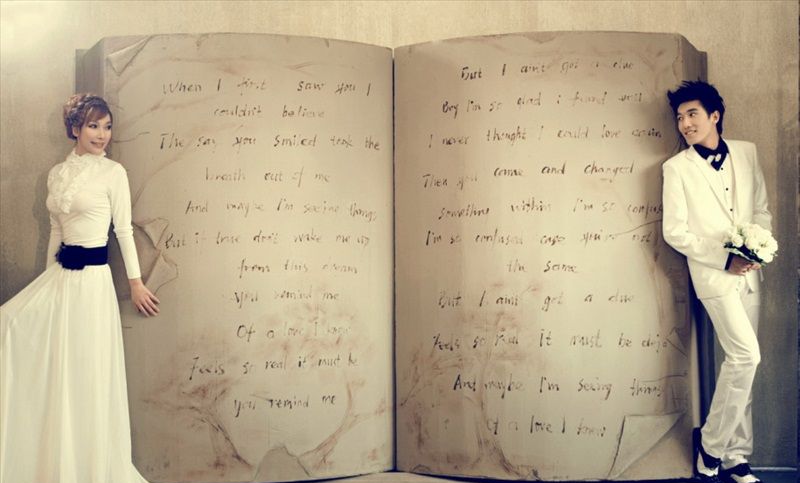 When I first saw you I
couldn't believe
The say you smiled took the
breath out of me
And maybe I'm seeing things
But if true don't wake me up
from this dream
You remind me
Of a love I knew
Feels so real it must be
you remind me
But I aint got a clue
Boy I'm so glad i found you
I never thought I could love again
Then you came and changed
something within I'm so confus
I'm so confused case you're not
the same
But I aint got a clue
Feels so real it must be deja
And maybe I'm seeing things
Of a love I knew